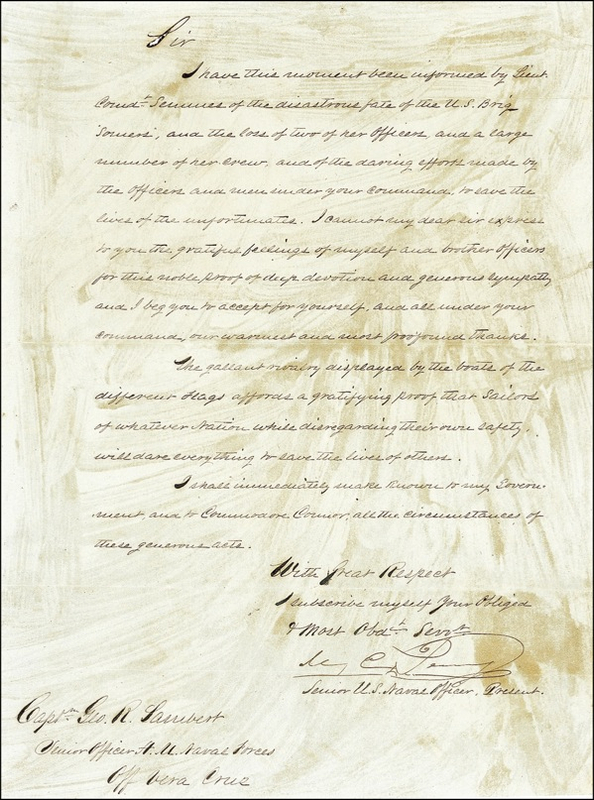 Sir
I have this moment been informed by Lieut
Comdt Semmes of the disastrous fate of the U.S. Brig
'Somers', and the loss of two of her Officers, and a large
number of her Crew, and of the daring efforts made by
the Officers and men under your Command, to save the
lives of the unfortunates. I cannot my dear sir express
to you the grateful feelings of myself and brother Officers
for this noble proof of deep devotion and generous sympathy
and I beg you to accept for yourself, and all under your
command, our warmest and most profound thanks.
The gallant rivalry displayed by the boats of the
different flags affords a gratifying proof that Sailors
of whatever Nation while disregarding their own safety,
will dare everything to save the lives of others.
I shall immediately make known to my Govern-
ment, and to Commodore Connor, all the circumstances of
these generous acts.
With Great Respect
I subscribe myself Your Obliged
& Most Obdt Servt
M C Perry
Senior U.S. Naval Officer, Present.
Captn Geo. R. Lambert
Senior Officer H. M. Naval Forces
Off Vera Cruz